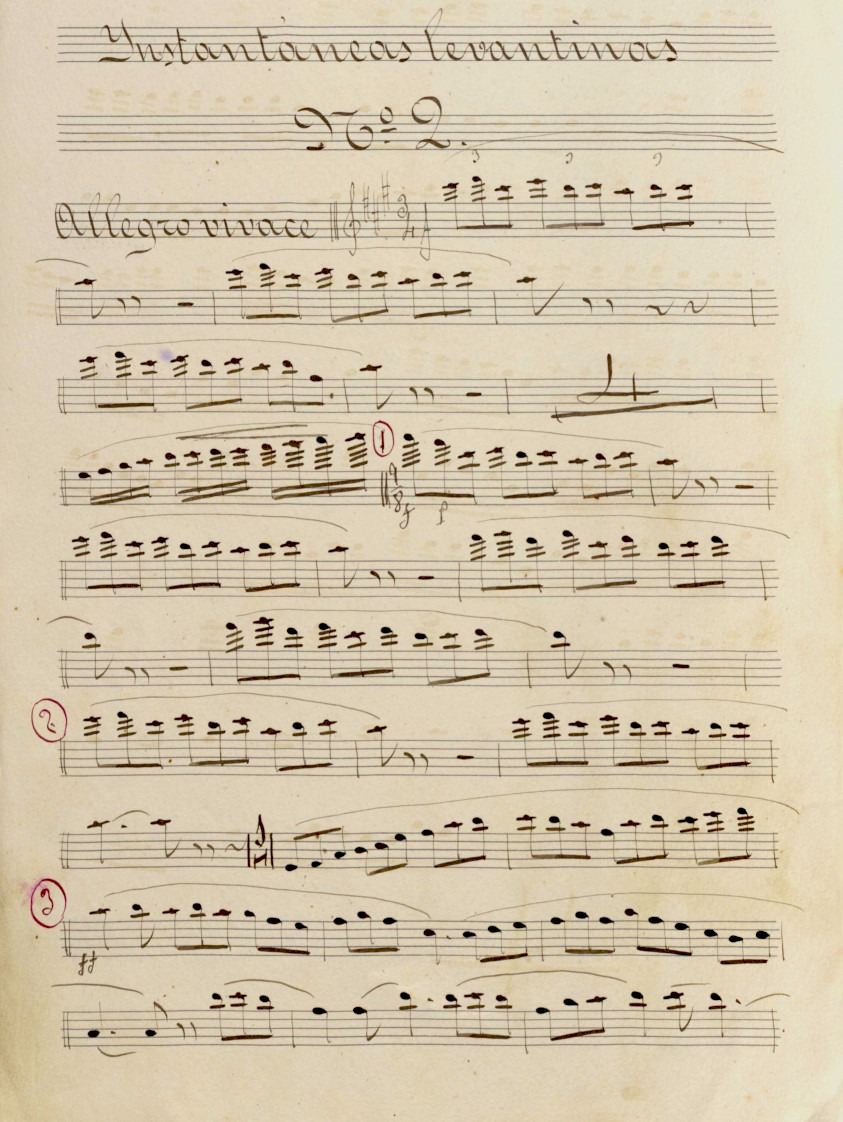 Ynstantáneas levantinas
Nº 2.
Allegro vivace 3/4 f 3 3 3
4
1 9/8 f f
2
3
ff